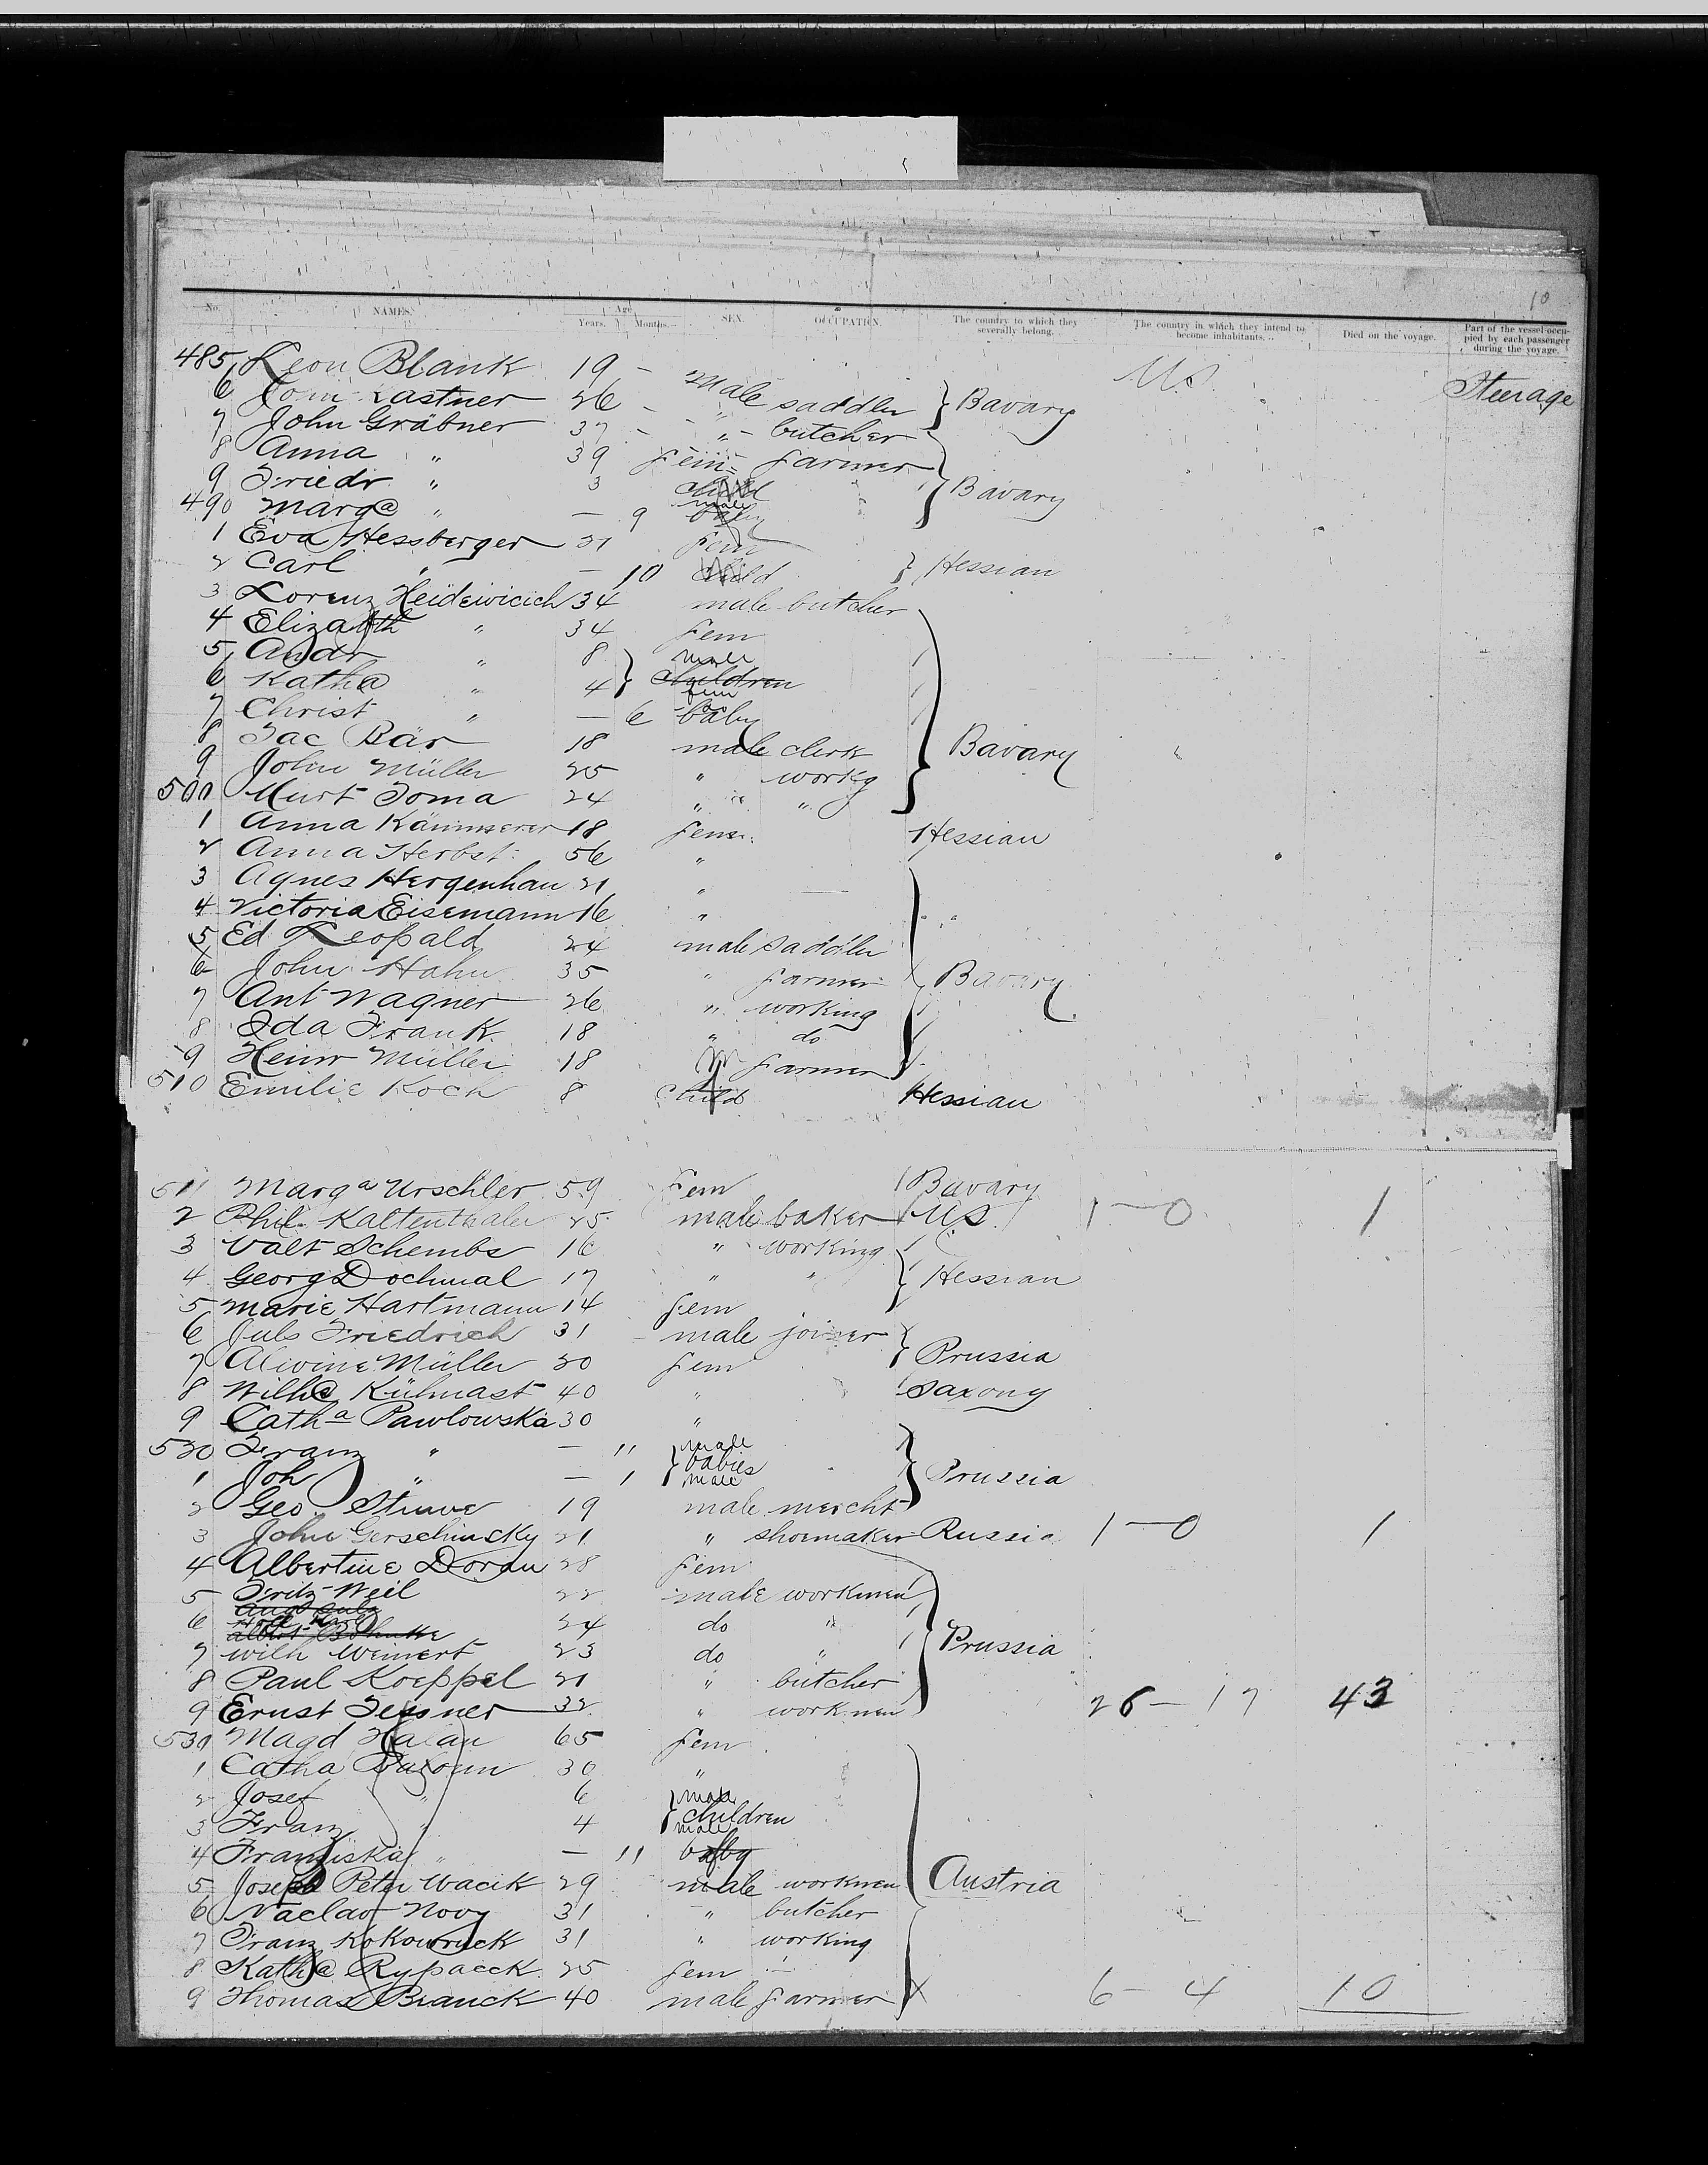 10
No. NAMES. Age Years. Months. SEX. OCCUPATION. The country to which they severally belong. The country in which they intend to become inhabitants. Died on the voyage. Part of the vessel occupied by each passenger during the voyage.
485 Leon Blank 19 - male saddler Bavary U.S. Steerage
6 John Kastner 26 - " - butcher
7 John Gräbner 37 - " farmer
8 Anna " 39 fem
9 Friedr " 3 child Bavary
490 Marga " — 9 male baby
1 Eva Hessberger 21 fem
2 Carl " — 10 child Hessian
3 Lorenz Heidewicich 34 male butcher
4 Elizabth " 34 fem
5 Andr " 8 male
6 Katha " 4 children fem
7 Christ " — 6 baby
8 Jac Bär 18 male clerk Bavary
9 John Müller 25 " workg
500 Kurt Toma 24 " "
1 Anna Kämmerer 18 fem. Hessian
2 Anna Herbst 56 "
3 Agnes Hergenhan 21 "
4 Victoria Eisemann 16 "
5 Ed Leopald 24 male saddler
6 John Hahn 35 " farmer Bavary
7 Ant Wagner 26 " working
8 Ida Frank 18 " do
9 Heinr Müller 18 m farmer
510 Emilie Koch 8 child Hessian
511 Marga Urschler 59 Fem Bavary
2 Phil. Kaltenthaler 25 male baker U.S. 1—0 1
3 Valt Schembs 16 " working
4 Georg Dochmal 17 " " Hessian
5 Marie Hartmann 14 fem
6 Juls Friedrich 31 male joiner
7 Alwine Müller 20 fem Prussia
8 Wilha Kühnast 40 " Saxony
9 Catha Pawlowska 30 "
520 Franz " — 11 male babies
1 Joh " — 1 male Prussia
2 Geo Stuwe 19 male mercht
3 John Gerschinsky 21 " shoemaker Russia 1—0 1
4 Albertine Doran 28 fem
5 Fritz Weil 22 male workmen
6 24 do "
7 Wilh Weinert 23 do " Prussia
8 Paul Koeppel 21 " butcher
9 Ernst Tessner 32 " workmen 26 — 17 43
530 Magd Halan 65 fem
1 Catha 30 "
2 Josef " 6 male
3 Franz " 4 children male
4 Franziska " — 11 baby
5 Joseph Peter Wacik 29 male workmen Austria
6 Naclav Novy 31 " butcher
7 Franz Kokowruck 31 " working
8 Katha Rypacek 25 fem
9 Thomas Branck 40 male farmer 6 - 4 10